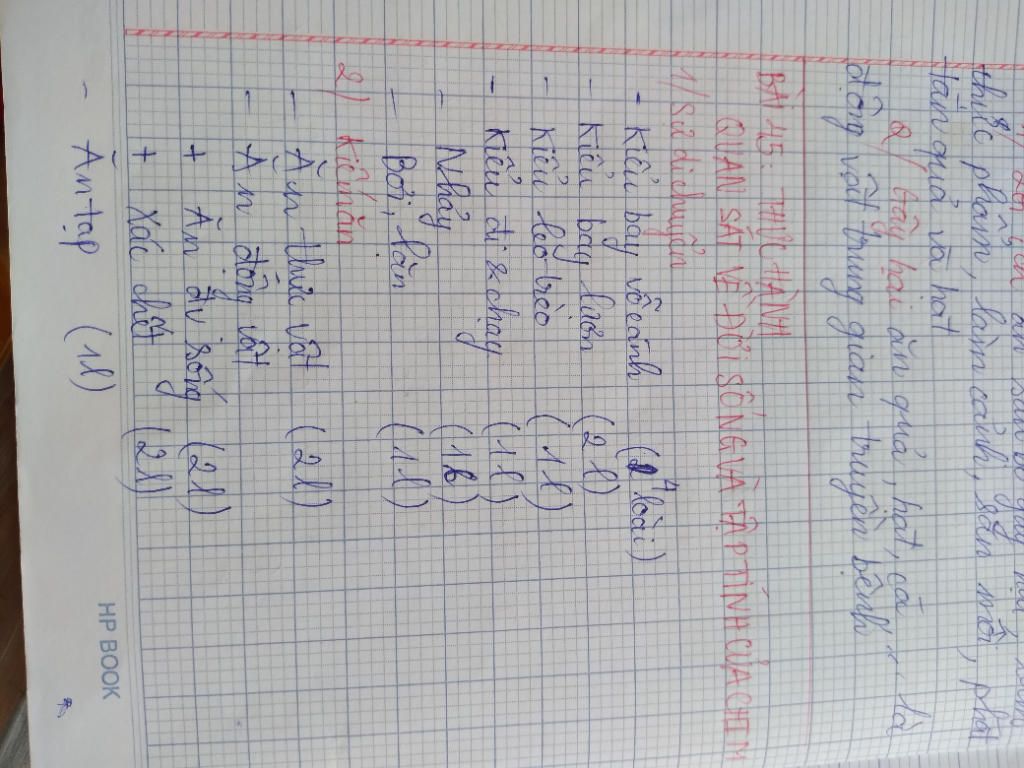 thức phẩm, làm cảnh, săn mồi, phát
tán quả và hạt
2/ Gây hại ăn quả, hạt, cá... là
động vật trung gian truyền bệnh
BÀI 45: THỰC HÀNH
QUAN SÁT VỀ ĐỜI SỐNG VÀ TẬP TÍNH CỦA CHIM
1/ Sự di chuyển
- Kiểu bay vỗ cánh (1 loài)
- Kiểu bay lượn (2l)
- Kiểu leo trèo (1l)
- Kiểu đi & chạy (1l)
- Nhảy (1l)
- Bơi, lặn (1l)
2) Kiểu ăn
- Ăn thực vật (2l)
- Ăn động vật
+ Ăn đv sống (2l)
+ Xác chết (2l)
- Ăn tạp (1l)
HP BOOK